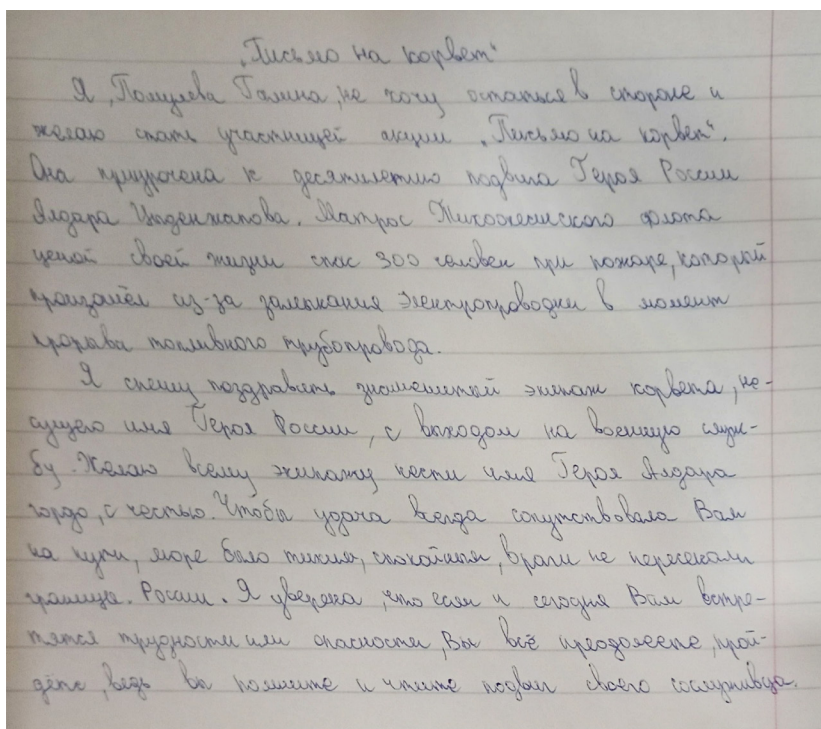 „Письмо на корвет"
Я, Помулева Галина, не хочу остаться в стороне и
желаю стать участницей акции „Письмо на корвет".
Она приурочена к десятилетию подвига Героя России
Алдара Цыденжапова. Матрос Тихоокеанского флота
ценой своей жизни спас 300 человек при пожаре, который
произошёл из-за замыкания электропроводки в момент
прорыва топливного трубопровода.
Я спешу поздравить знаменитый экипаж корвета, не-
сущего имя Героя России, с выходом на военную служ-
бу. Желаю всему экипажу нести имя Героя Алдара
гордо, с честью. Чтобы удача всегда сопутствовала Вам
на пути, море было тихим, спокойным, враги не пересекали
границы. России. Я уверена, что если и сегодня Вам встре-
тятся трудности или опасности, Вы всё преодолеете, прой-
дёте, ведь вы помните и чтите подвиг своего сослуживца.